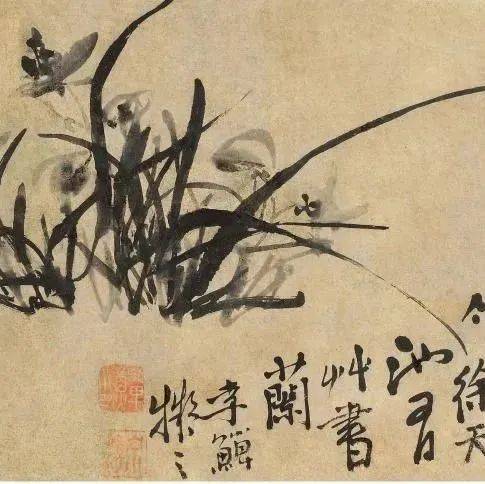 徐天
池有
艸書
蘭
李鱓
擬之